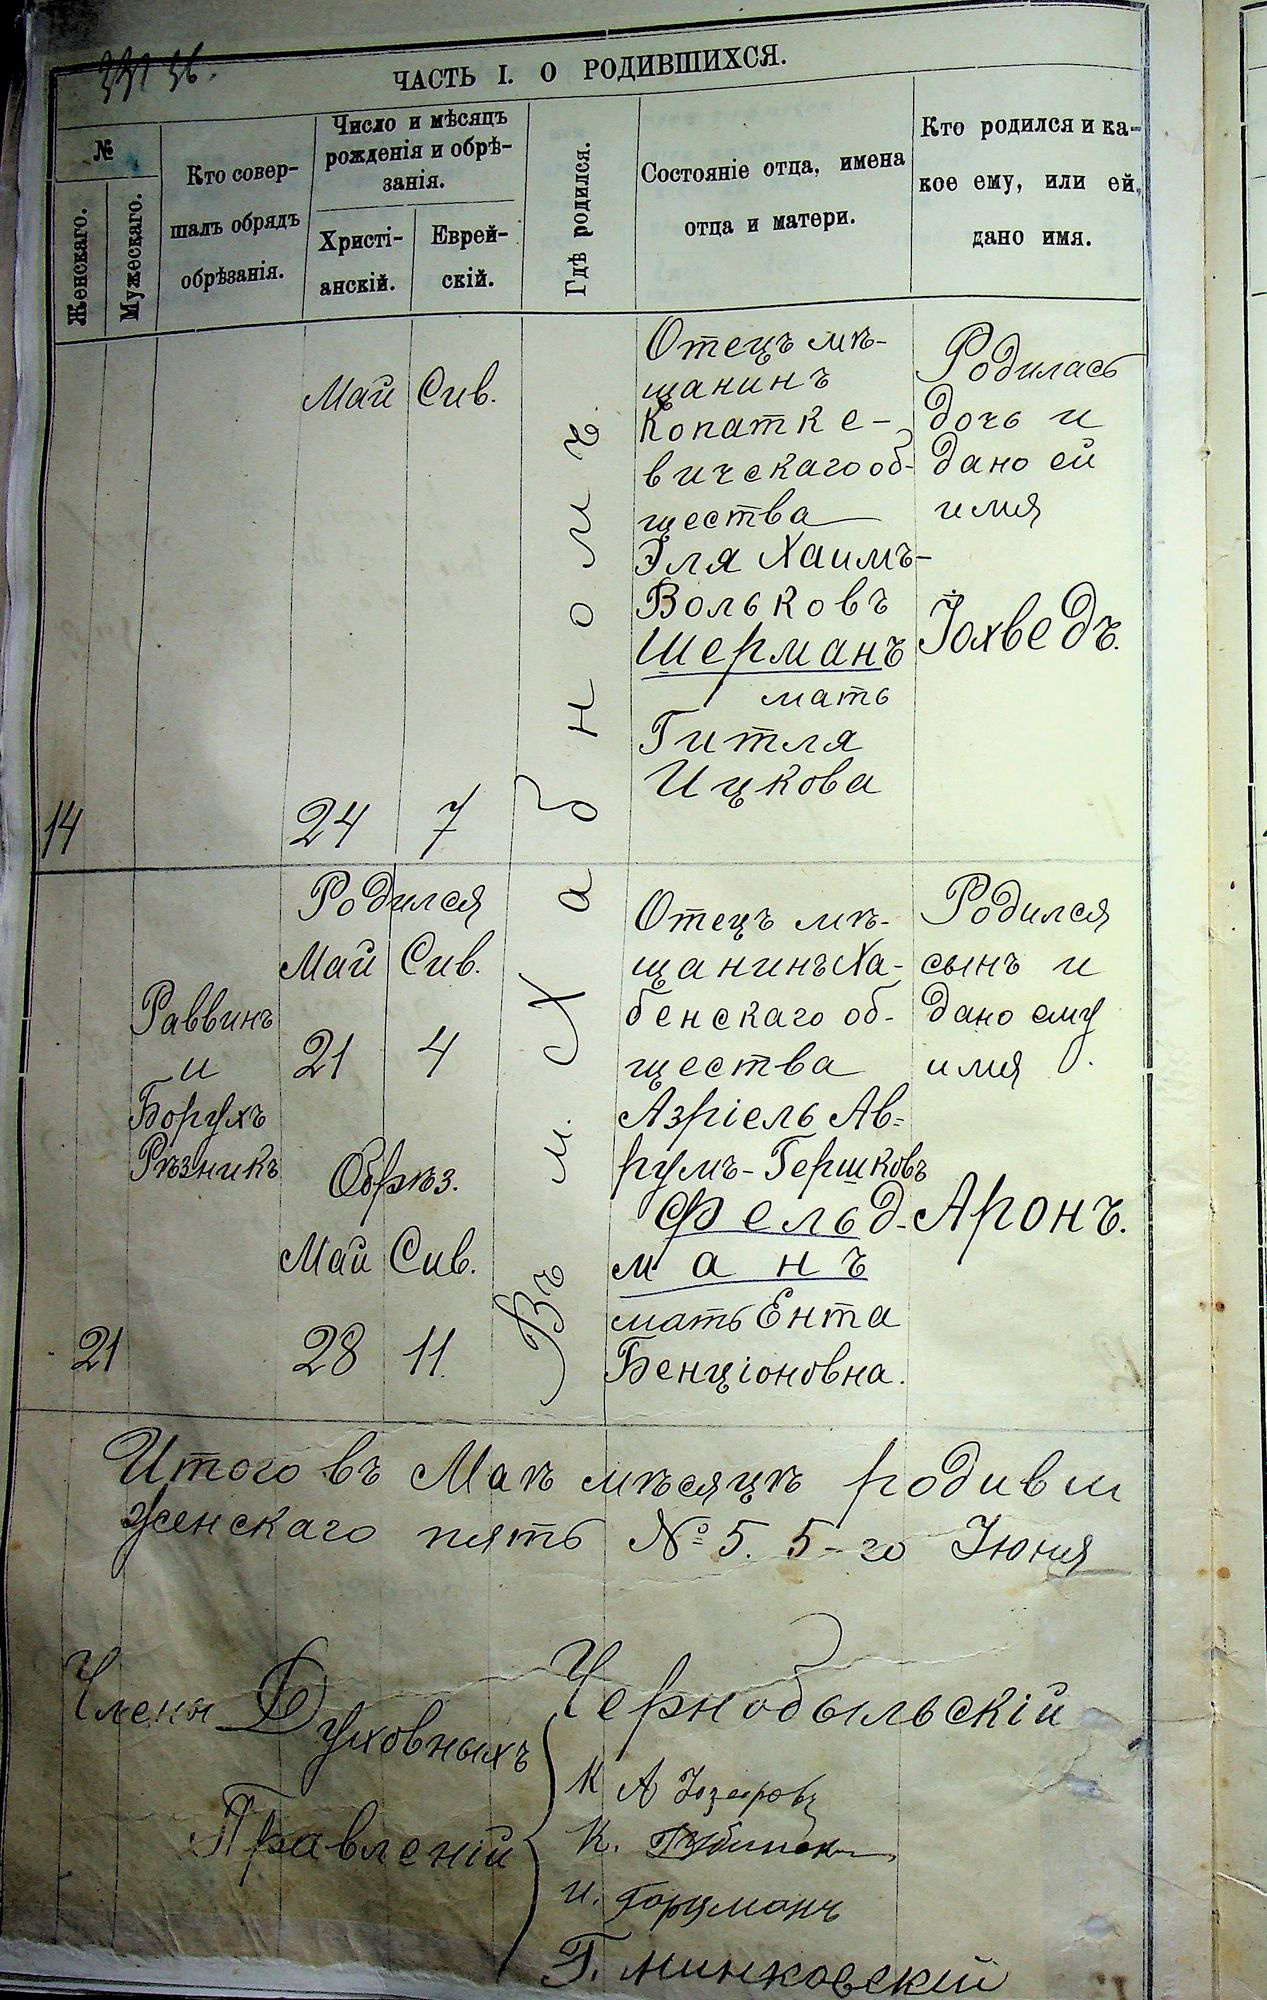 36.
ЧАСТЬ I. О РОДИВШИХСЯ.
№
Женскаго.
Мужескаго.
Кто совер-
шалъ обрядъ
обрѣзанія.
Число и мѣсяцъ
рожденія и обрѣ-
занія.
Христі-
анскій.
Еврей-
скій.
Гдѣ родился.
Состояніе отца, имена
отца и матери.
Кто родился и ка-
кое ему, или ей,
дано имя.
14
Май Сив.
24 7
Въ м. Хабномъ.
Отецъ мѣ-
щанинъ
Копатке-
вичскаго об-
щества
Эля Хаимъ-
Вольковъ
Шерманъ
мать
Гитля
Ицкова
Родилась
дочь и
дано ей
имя
Іохведъ.
21
Раввинъ
и
Борухъ
Рѣзникъ
Родился
Май Сив.
21 4
Обрѣз.
Май Сив.
28 11.
Отецъ мѣ-
щанинъ Ха-
бенскаго об-
щества
Азріель Ав-
румъ-Гершковъ
Фельд-
манъ
мать Ента
Бенціоновна.
Родился
сынъ и
дано ему
имя
Аронъ.
Итого въ Маѣ мѣсяцѣ родивш
женскаго пять № 5. 5-го Іюня
Члены Духовныхъ
Правленій
Чернобыльскій
К А
К.
И.
Г. Минковскій